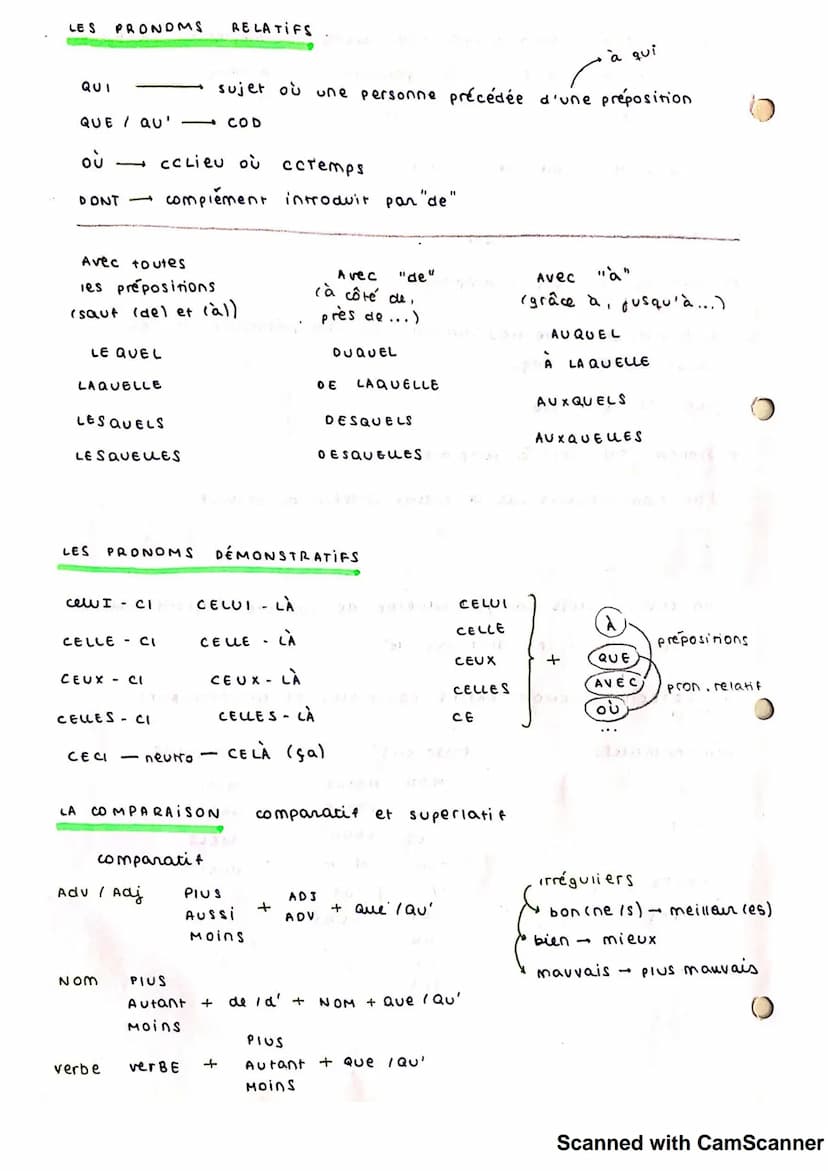 LES PRONOMS RELATIFS
à qui
QUI → sujet où une personne précédée d'une préposition
QUE / QU' → COD
OÙ → CCLieu où CCTemps
DONT → complément introduit par "de"
Avec toutes les prépositions (sauf (de) et (à))
LEQUEL
LAQUELLE
LESQUELS
LESQUELLES
Avec "de" (à côté de, près de ...)
DUQUEL
DE LAQUELLE
DESQUELS
DESQUELLES
Avec "à" (grâce à, jusqu'à...)
AUQUEL
À LAQUELLE
AUXQUELS
AUXQUELLES
LES PRONOMS DÉMONSTRATIFS
CELUI - CI CELUI - LÀ
CELLE - CI CELLE - LÀ
CEUX - CI CEUX - LÀ
CELLES - CI CELLES - LÀ
CECI — neutro — CELÀ (ça)
CELUI
CELLE
CEUX
CELLES
CE
+
À
QUE
AVEC
OÙ
...
prépositions
pron. relatif
LA COMPARAISON comparatif et superlatif
comparatif
Adv / Adj
PLUS
AUSSI
MOINS
+ ADJ ADV + que / qu'
NOM
PLUS
Autant + de / d' + NOM + que / qu'
MOINS
verbe verBE +
PLUS
Autant + que / qu'
MOINS
irréguliers
bon (ne/s) → meilleur (es)
bien → mieux
mauvais → plus mauvais
Scanned with CamScanner